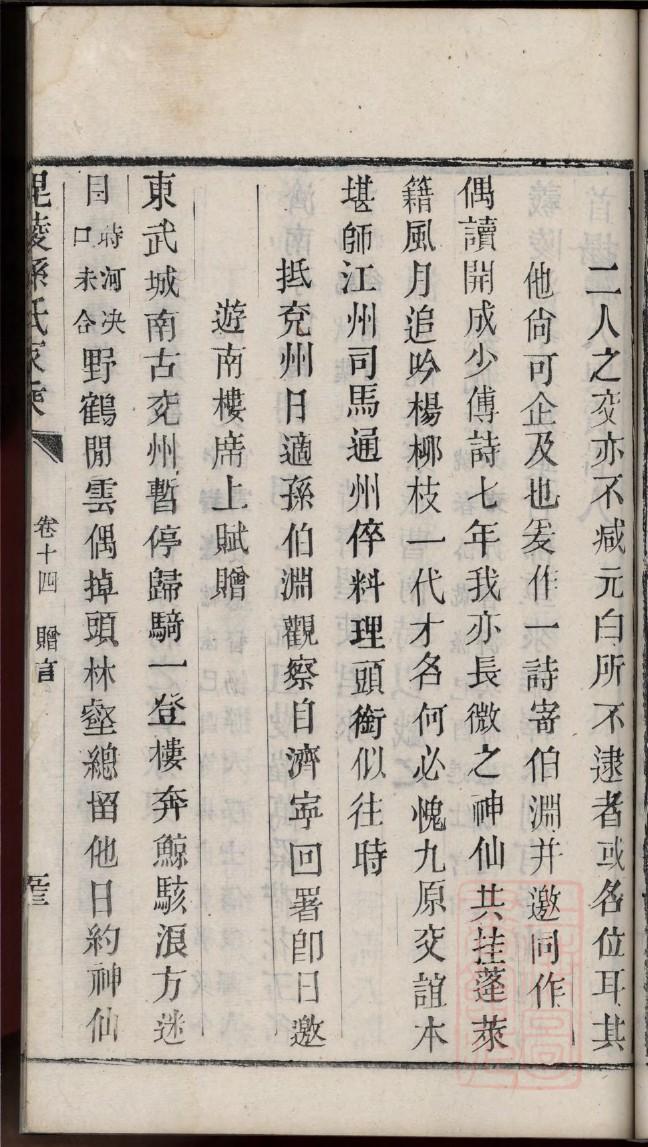 二人之交亦不减元白所不逮者或名位耳其
他尙可企及也爰作一詩寄伯淵并邀同作
偶讀開成少傅詩七年我亦長微之神仙共挂蓬萊
籍風月追吟楊柳枝一代才名何必愧九原交誼本
堪師江州司馬通州倅料理頭銜似往時
抵兖州日適孫伯淵觀察自濟寧回署卽日邀
遊南樓席上賦贈
東武城南古兖州暫停歸騎一登樓奔鯨駭浪方迷
目時河決口未合野鶴閒雲偶掉頭林壑總留他日約神仙
毘陵孫氏家乘
卷十四 贈言